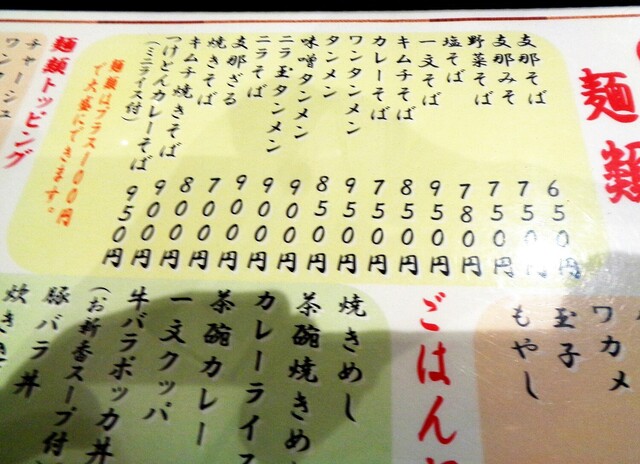 麺類
支那そば 650円
支那みそ 750円
野菜そば 750円
塩そば 780円
一文そば 950円
キムチそば 850円
カレーそば 750円
ワンタンメン 950円
タンメン 850円
味噌タンメン 900円
ニラ玉タンメン 900円
ニラそば 900円
支那ざる 700円
焼きそば 800円
キムチ焼きそば 900円
つけどんカレーそば 950円
(ミニライス付)
麺類はプラス100円
で大盛にできます。
麺類トッピング
チャーシュ
ワンタ
ワカメ
玉子
もやし
ごはん
焼きめし
茶碗焼きめ
カレーライス
茶碗カレー
一文クッパ
牛バラポッカ丼
(お新香スープ付
豚バラ丼
炊き